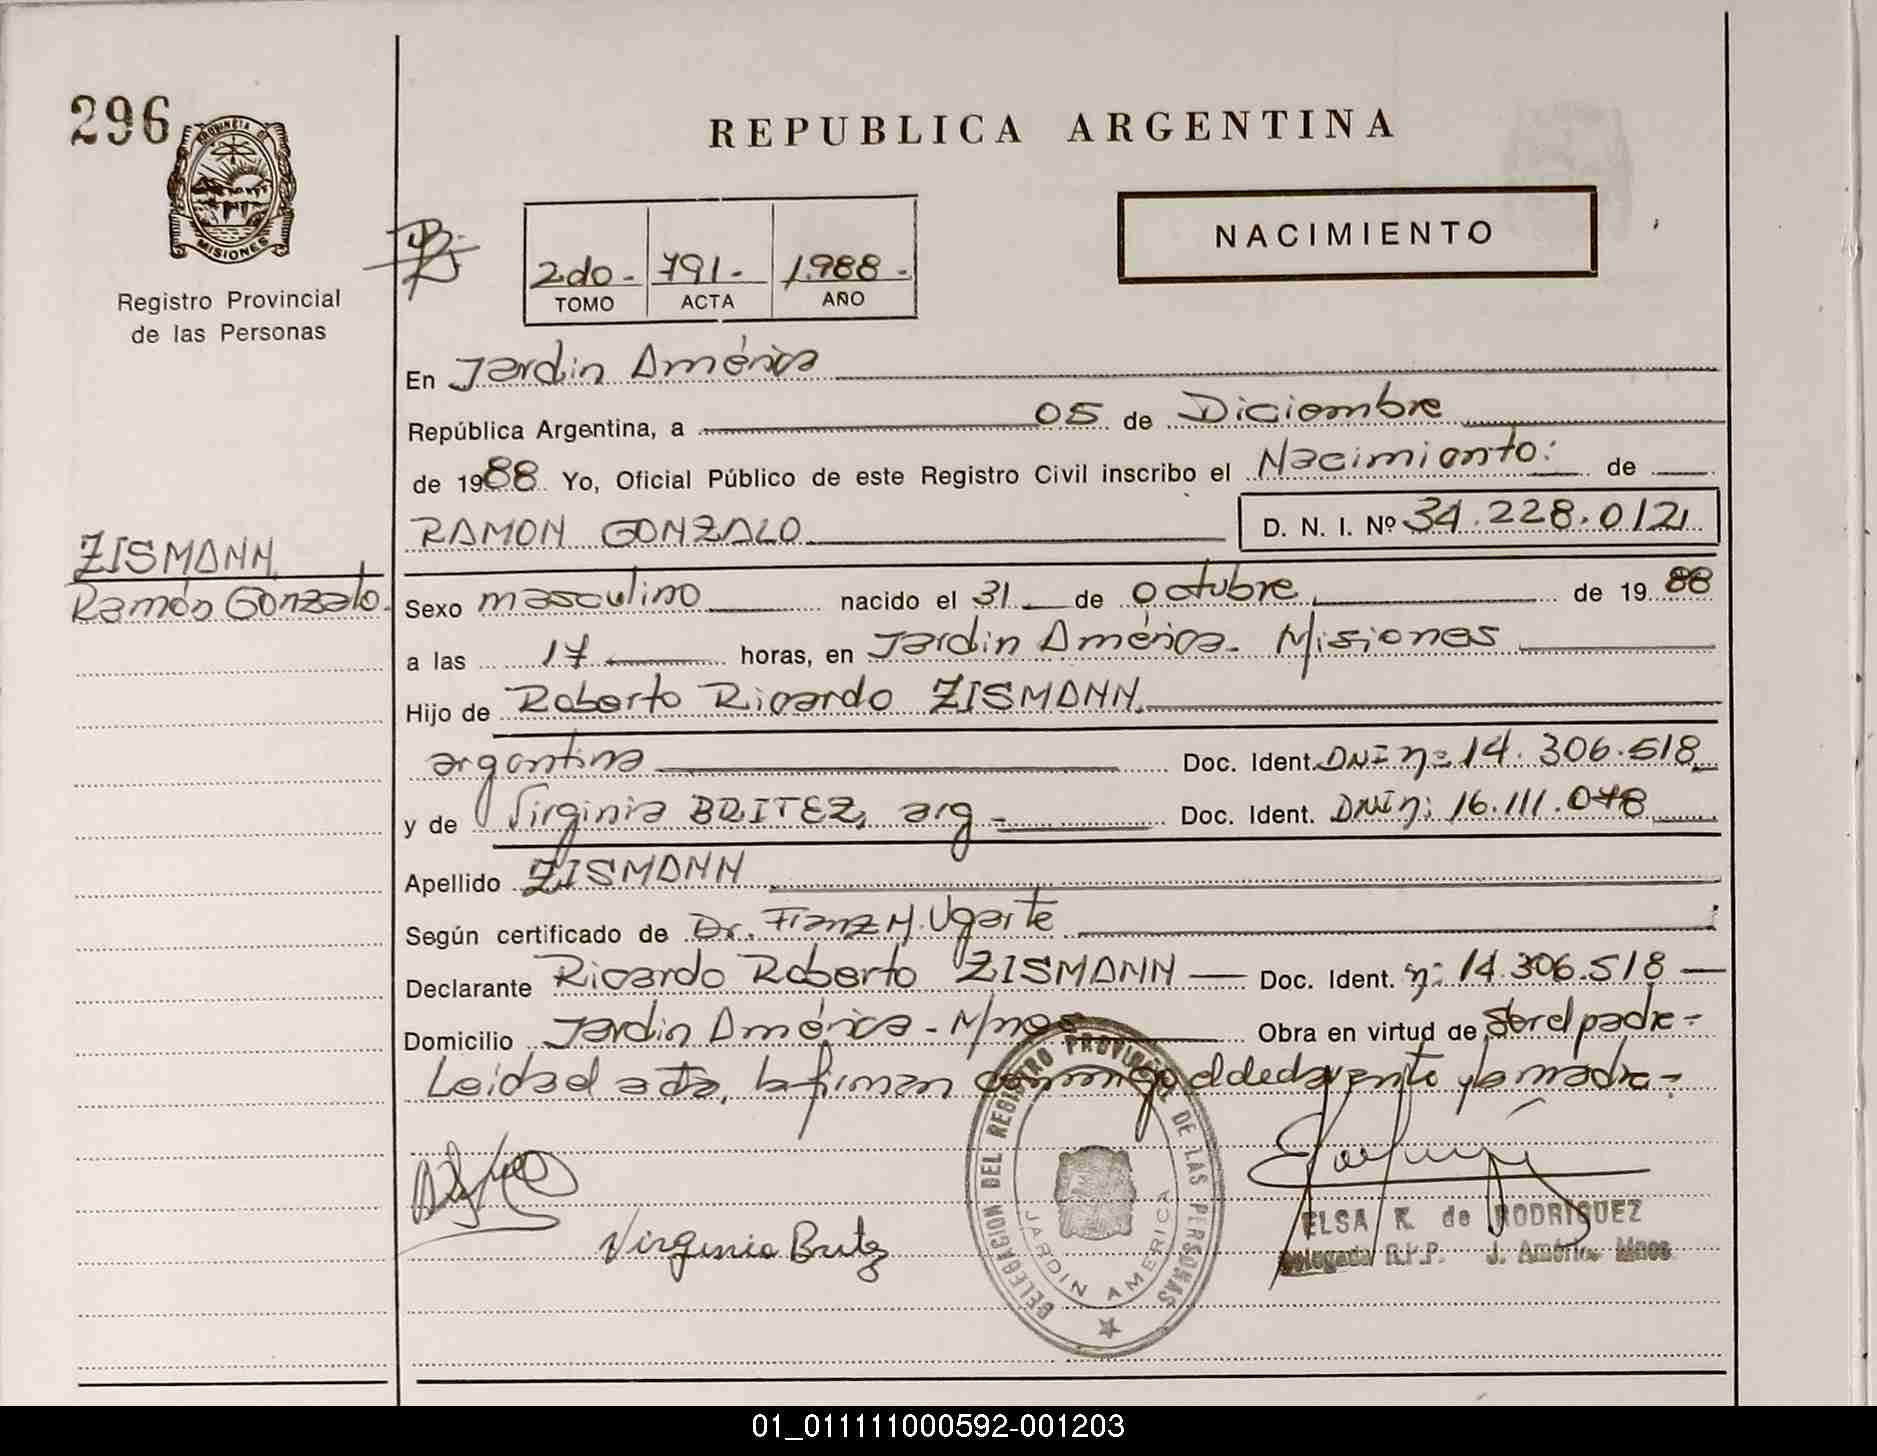 296
PROVINCIA DE
MISIONES
Registro Provincial
de las Personas
REPUBLICA ARGENTINA
NACIMIENTO
2do - 791 - 1988 -
TOMO ACTA AÑO
En Jardin América
República Argentina, a 05 de Diciembre
de 1988 Yo, Oficial Público de este Registro Civil inscribo el Nacimiento: de
RAMON GONZALO D. N. I. Nº 34.228.012
ZISMANN
Ramón Gonzalo.
Sexo masculino nacido el 31 de octubre de 1988
a las 17 horas, en Jardin América - Misiones
Hijo de Roberto Ricardo ZISMANN
argentina Doc. Ident. DNI n= 14.306.518
y de Virginia BRITEZ, arg - Doc. Ident. DNI n: 16.111.048
Apellido ZISMANN
Según certificado de Dr. Franz M. Ugarte
Declarante Ricardo Roberto ZISMANN Doc. Ident. n: 14.306.518
Domicilio Jardin América - Mnes Obra en virtud de Ser el padre -
Leida el acta, la firman conmigo el declarante y la madre -
Virginia Britez
DELEGACION DEL REGISTRO PROVINCIAL DE LAS PERSONAS
JARDIN AMERICA
ELSA K. de RODRIGUEZ
Delegada R.P.P. J. América Mnes
01_011111000592-001203